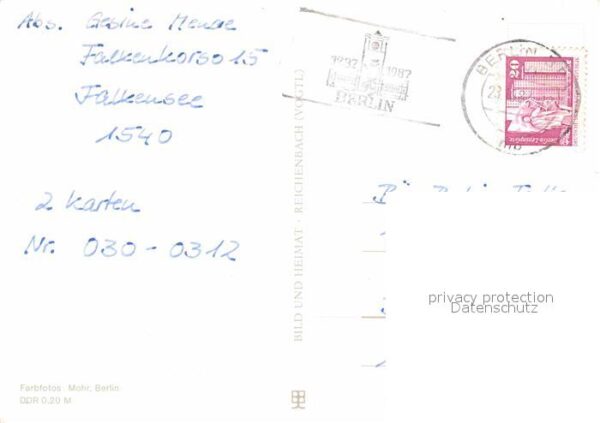 Abs. Gesine
Falkenkorso 15
Falkensee
1540
2 Karten
Nr. 030-0312
1237 1987
BERLIN
BERLIN
20
BILD UND HEIMAT · REICHENBACH (VOGTL)
privacy protection
Datenschutz
Farbfotos: Mohr, Berlin
DDR 0,20 M